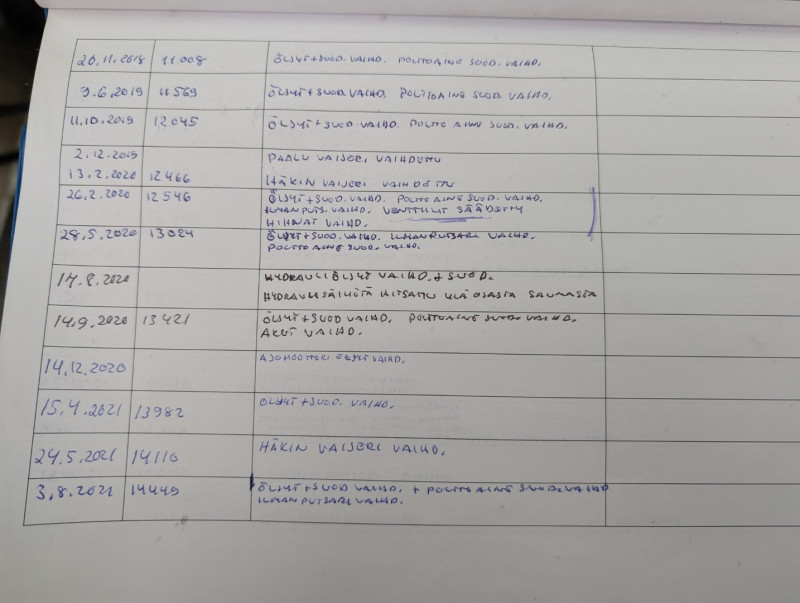 20.11.2018 11008 ÖLJYT+SUOD.VAIHD. POLTTOAINE SUOD.VAIHD.
3.6.2019 11569 ÖLJYT+SUOD VAIHD. POLTTOAINE SUOD VAIHD.
11.10.2019 12045 ÖLJYT+SUOD VAIHD. POLTTOAINE SUOD.VAIHD.
2.12.2019 PAALU VAIJERI VAIHDETTU
13.2.2020 12466 HÄKIN VAIJERI VAIHDETTU
26.2.2020 12546 ÖLJYT+SUOD.VAIHD. POLTTOAINE SUOD.VAIHD.
ILMANPUTS.VAIHD. VENTTIILIT SÄÄDETTY
HIHNAT VAIHD.
28.5.2020 13024 ÖLJYT+SUOD.VAIHD. ILMANPUTSARI VAIHD.
POLTTOAINE SUOD.VAIHD.
14.8.2020 HYDRAULIÖLJYT VAIHD.+SUOD.
HYDRAULISÄILIÖTÄ HITSATTU YLÄOSASTA SAUMASTA
14.9.2020 13421 ÖLJYT+SUOD VAIHD. POLTTOAINE SUOD.VAIHD.
AKUT VAIHD.
14.12.2020 AJOMOOTTORI ÖLJYT VAIHD.
15.4.2021 13982 ÖLJYT+SUOD.VAIHD.
24.5.2021 14110 HÄKIN VAIJERI VAIHD.
3.8.2021 14449 ÖLJYT+SUOD VAIHD. + POLTTOAINE SUOD.VAIHD
ILMANPUTSARI VAIHD.